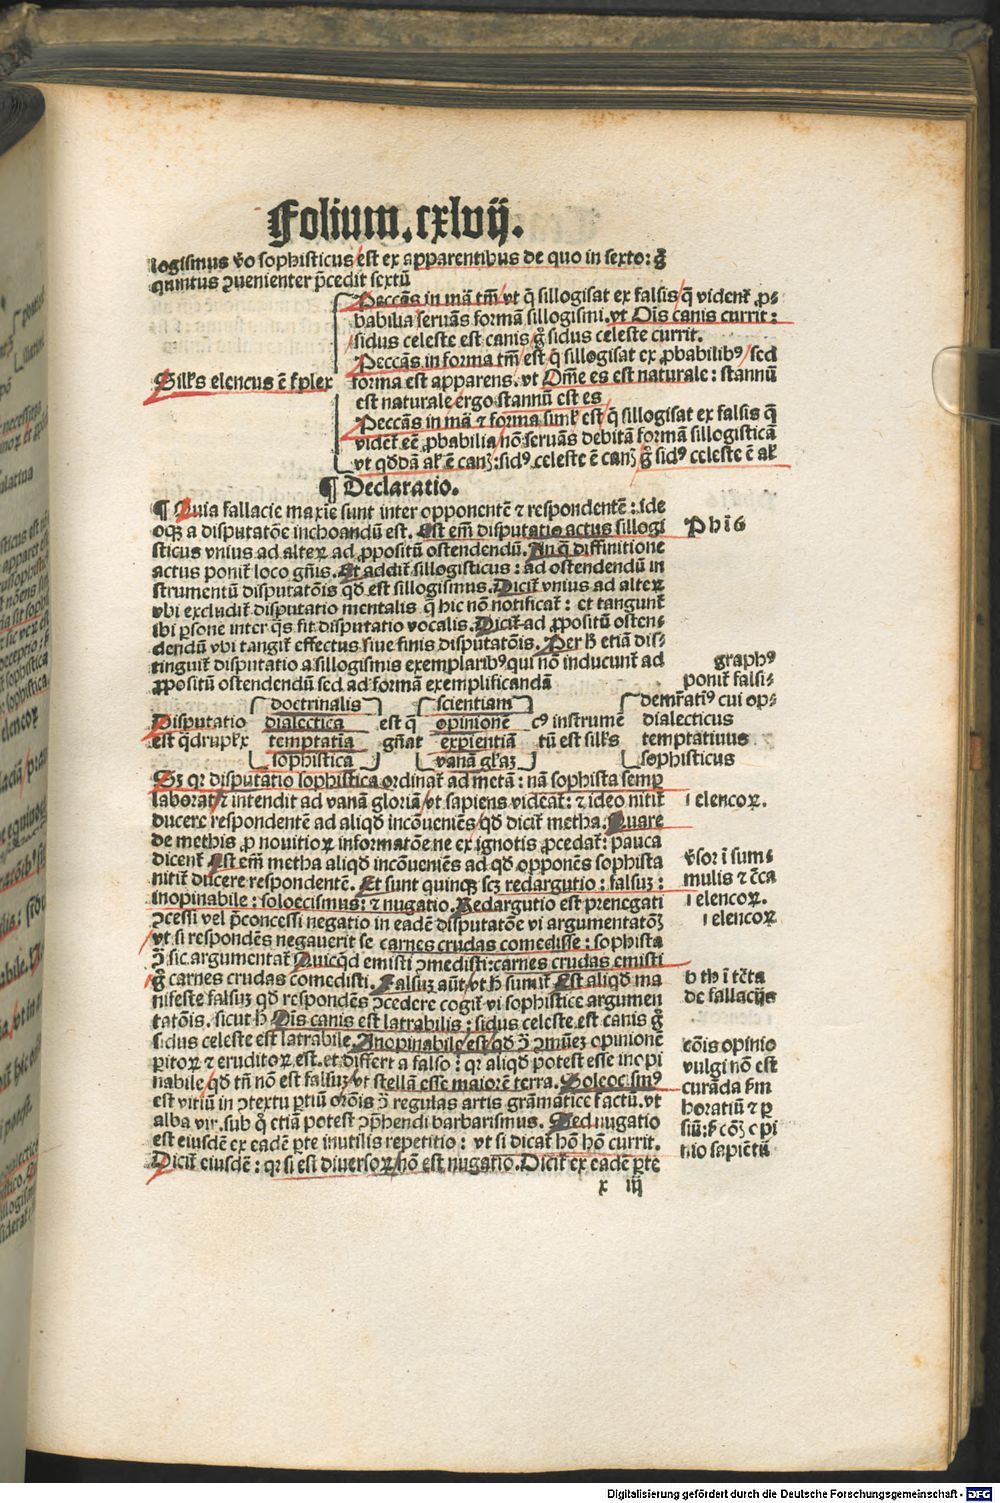 Folium.cxlvij.
logismus v̄o sophisticus est ex apparentibus de quo in sexto: g̃
quintus ꝯuenienter p̄cedit sextū
Peccās in mā tm̄ vt q̄ sillogisat ex falsis q̄ vidēt ꝓ-
babilia seruās formā sillogismi.vt Oīs canis currit:
sidus celeste est canis g̊ sidus celeste currit.
Peccās in forma tm̄ est q̄ sillogisat ex ꝓbabilibꝰ sed
Silr̄s elencus ē tͥplex
forma est apparens. vt Om̄e es est naturale: stannū
est naturale ergo stannū est es
Peccās in mā ⁊ forma simł est q̄ sillogisat ex falsis q̄
vidēt eē ꝓbabilia nō seruās debitā formā sillogisticā
vt qd̄dā ał ē canꝫ:sidꝰ celeste ē canꝫ g̊ sidꝰ celeste ē ał
¶ Declaratio.
¶ Quia fallacie maxīe sunt inter opponentē ⁊ respondentē: ide
oqꝫ a disputatōe inchoandū est. Est em̄ disputatio actus sillogi
Phī6
sticus vnius ad alteꝝ ad ꝓpositū ostendendū. In q̄ diffinitione
actus ponit loco gn̄is. Et addit̄ sillogisticus: ad ostendendū in
strumentū disputatōis qd̄ est sillogismus. Dicit̄ vnius ad alteꝝ
vbi excludit̄ disputatio mentalis q̄ hic nō notificat̄: et tangunt̄
ibi ꝑsone inter q̄s fit disputatio vocalis. Dicit̄ ad ꝓpositū osten-
dendū vbi tangit̄ effectus siue finis disputatōis. Per h̄ etiā dis-
tinguit̄ disputatio a sillogismis exemplaribꝰ qui nō inducunt̄ ad
graphꝰ
ponit̄ falsi-
ꝓpositū ostendendū sed ad formā exemplificandā
doctrinalis scientiam demr̄atiꝰ cui op-
Disputatio dialectica est q̄ opinionē cꝰ instrumē dialecticus
est q̄drupłx temptatīa gn̄at expiētiā tū est silr̄s temptatiuus
sophistica vanā gl̄aꝫ sophisticus
Sꝫ qr disputatio sophistica ordinat̄ ad metā: nā sophista semꝑ
laborat ⁊ intendit ad vanā gloriā vt sapiens videat̄: ⁊ ideo nitit̄
i elencoꝝ.
ducere respondentē ad aliqd̄ incōueniēs qd̄ dicit̄ metha. Quare
de methis ꝓ nouitioꝝ informatōe ne ex ignotis ꝓcedat̄: pauca
dicent̄ Est em̄ metha aliqd̄ incōueniēs ad qd̄ opponēs sophista
v̄sor i sum-
nitit̄ ducere respondentē. Et sunt quinqꝫ scꝫ redargutio: falsuꝫ:
mulis ⁊ c̄ca
inopinabile: soloecismus: ⁊ nugatio. Redargutio est prenegati
i elencoꝝ.
ꝯcessi vel p̄concessi negatio in eadē disputatōe vi argumentatōꝫ
i elencoꝝ
vt si respondēs negauerit se carnes crudas comedisse: sophista
ꝯ̄ sic argumentat̄ Quicqd̄ emisti ꝯmedisti:carnes crudas emisti
g̊ carnes crudas comedisti. Falsuꝫ aūt vt h̄ sumit̄ Est aliqd̄ ma
b th i tc̄ta
nifeste falsuꝫ qd̄ respondēs ꝯcedere cogit̄ vi sophistice argumen
de fallacijs
tatōis. sicut h̄ Oīs canis est latrabilis: sidus celeste est canis g̊
sidus celeste est latrabile. Inopinabile est qd̄ ꝯ̄ ꝯmuneꝫ opinionē
cōis opinio
ꝑitoꝝ ⁊ eruditoꝝ est. et differt a falso: qr aliqd̄ potest esse inopi
vulgi nō est
nabile qd̄ tn̄ nō est falsuꝫ vt stellā esse maiorē terra. Soleocismꝰ
curāda s̄m
est vitiū in ꝯtextu ꝑtiū orōis ꝯ̄ regulas artis grāmatice factū.vt
horatiū ⁊ ꝑ
alba vir.sub q̊ etiā potest ꝯp̄hendi barbarismus. Sed nugatio
siū:
est eiusdē ex eadē ꝑte inutilis repetitio: vt si dicat̄ hō hō currit.
nio sapiētū
Dicit̄ eiusdē: qr si est diuersoꝝ hō est nugatio. Dicit̄ ex eadē ꝑte
x iij
Digitalisierung gefördert durch die Deutsche Forschungsgemeinschaft - DFG